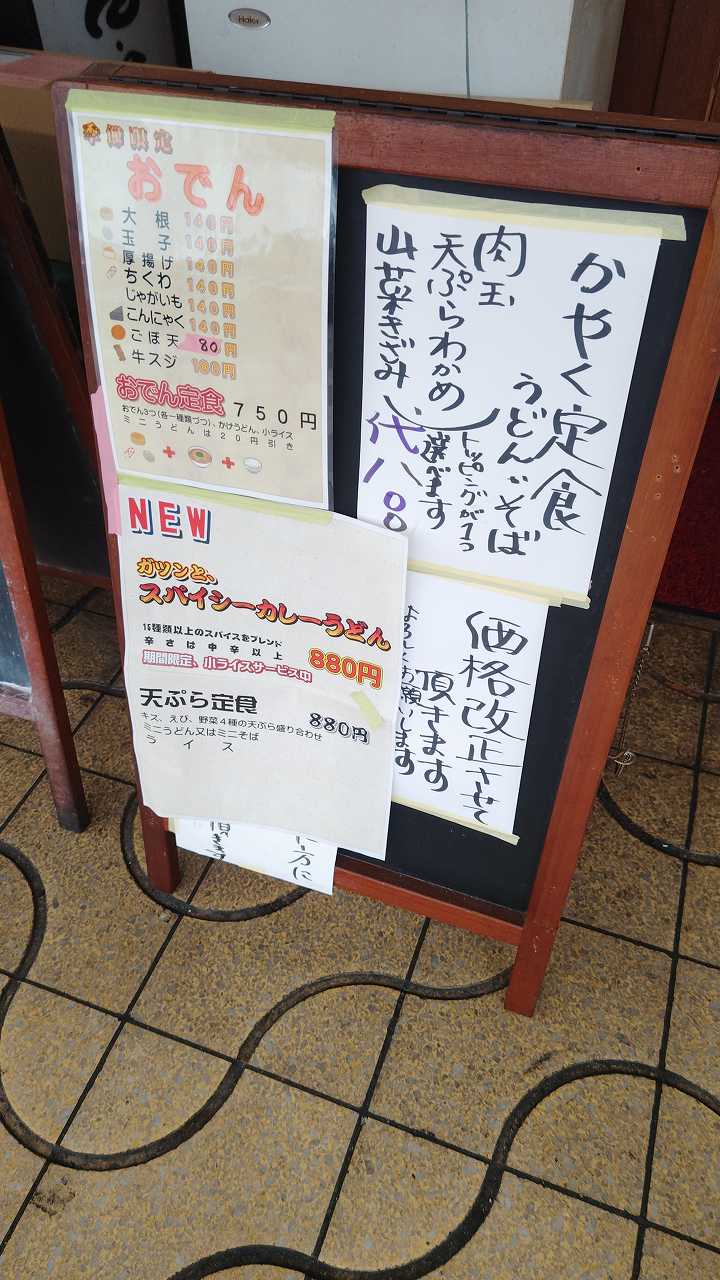 Haier
季節限定
おでん
大根 140円
玉子 140円
厚揚げ 140円
ちくわ 140円
じゃがいも 140円
こんにゃく 140円
ごぼ天 80円
牛スジ 180円
おでん定食 750円
おでん3つ(各一種類づつ)、かけうどん、小ライス
ミニうどんは20円引き
+ +
NEW
ガツンと、
スパイシーカレーうどん
16種類以上のスパイスをブレンド
辛さは中辛以上
期間限定、小ライスサービス中 880円
天ぷら定食 880円
キス、えび、野菜4種の天ぷら盛り合わせ
ミニうどん又はミニそば
ライス
かやく定食
うどん、そば
肉玉
天ぷらわかめ
山菜きざみ
トッピングが1つ
選べます
代八〇〇
価格改正させて
頂きます
よろしくお願いします